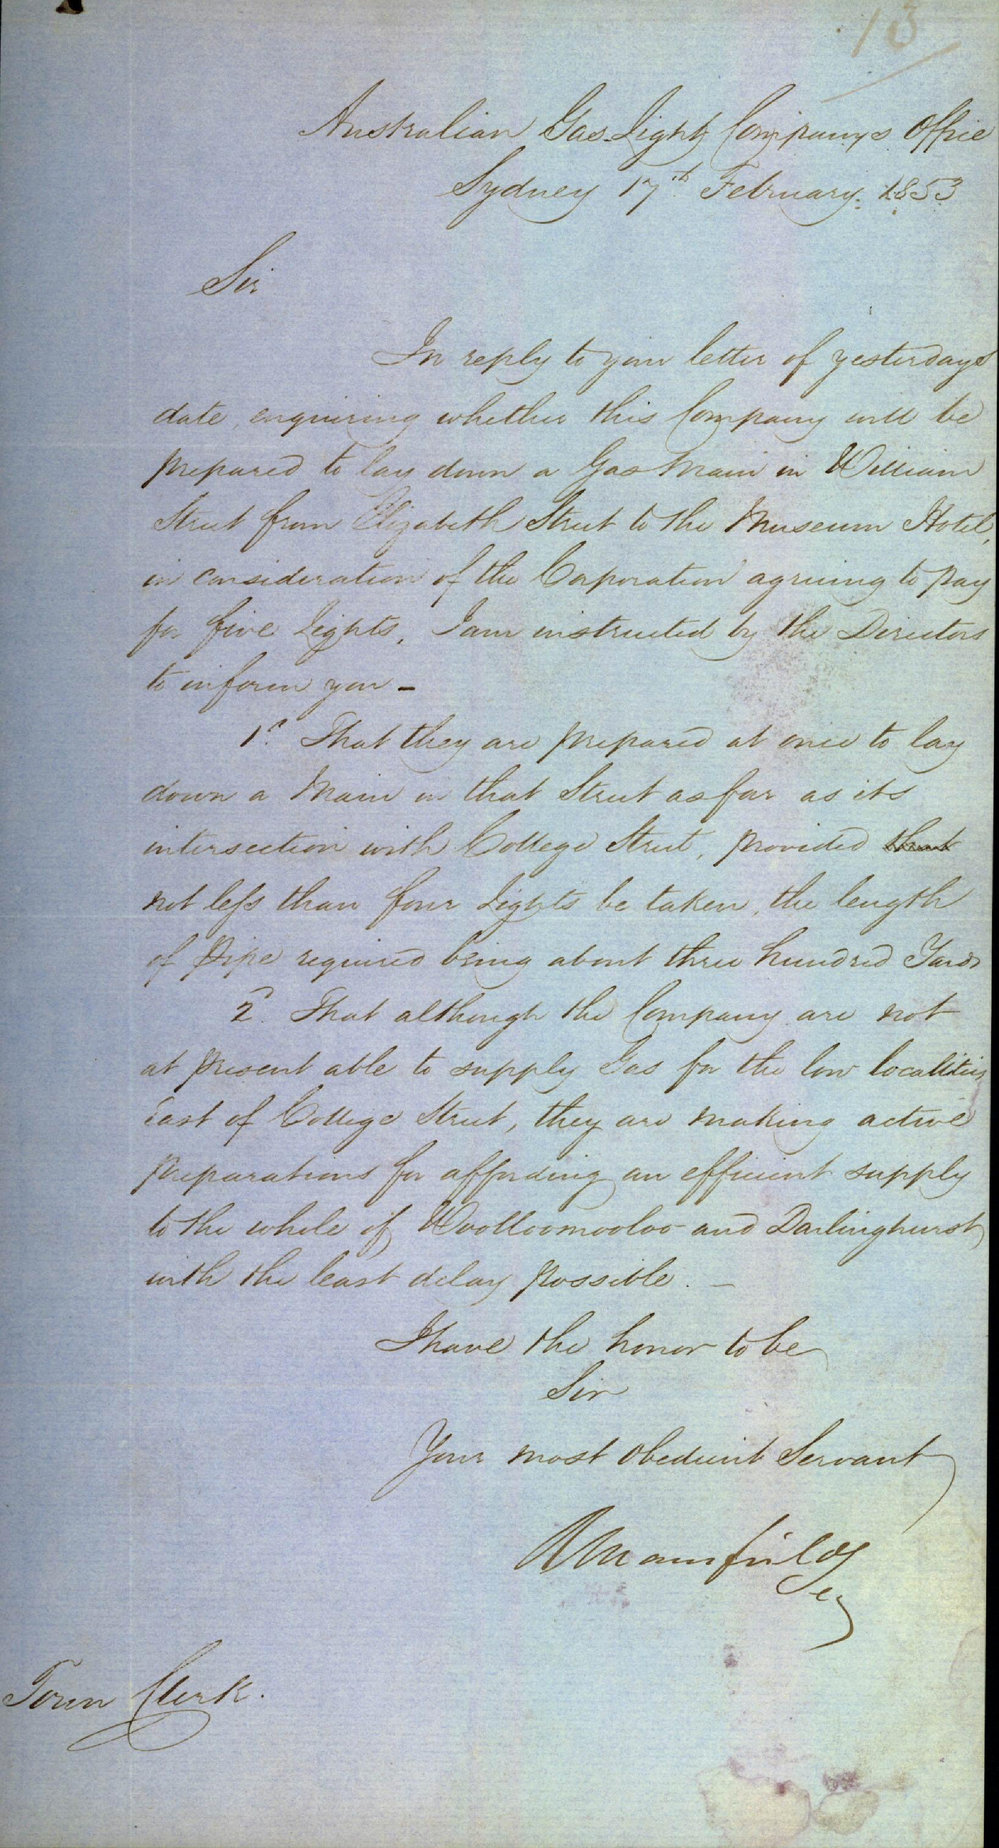 13
Australian Gas Light Company's Office
Sydney 17th February 1853
Sir
In reply to your letter of yesterdays
date, enquiring whether this Company will be
prepared to lay down a Gas Main in William
Street from Elizabeth Street to the Museum Hotel,
in consideration of the Corporation agreeing to pay
for five Lights, I am instructed by the Directors
to inform you -
1st. That they are prepared at once to lay
down a Main in that Street as far as its
intersection with College Street, provided that
not less than four Lights be taken, the length
of Pipe required being about three hundred Yards
2d. That although the Company are not
at present able to supply Gas for the low localities
East of College Street, they are making active
preparations for affording an efficient supply
to the whole of Woolloomooloo and Darlinghurst
with the least delay possible. -
I have the honor to be
Sir
Your most obedient Servant
R Mansfield
Sey
Town Clerk.